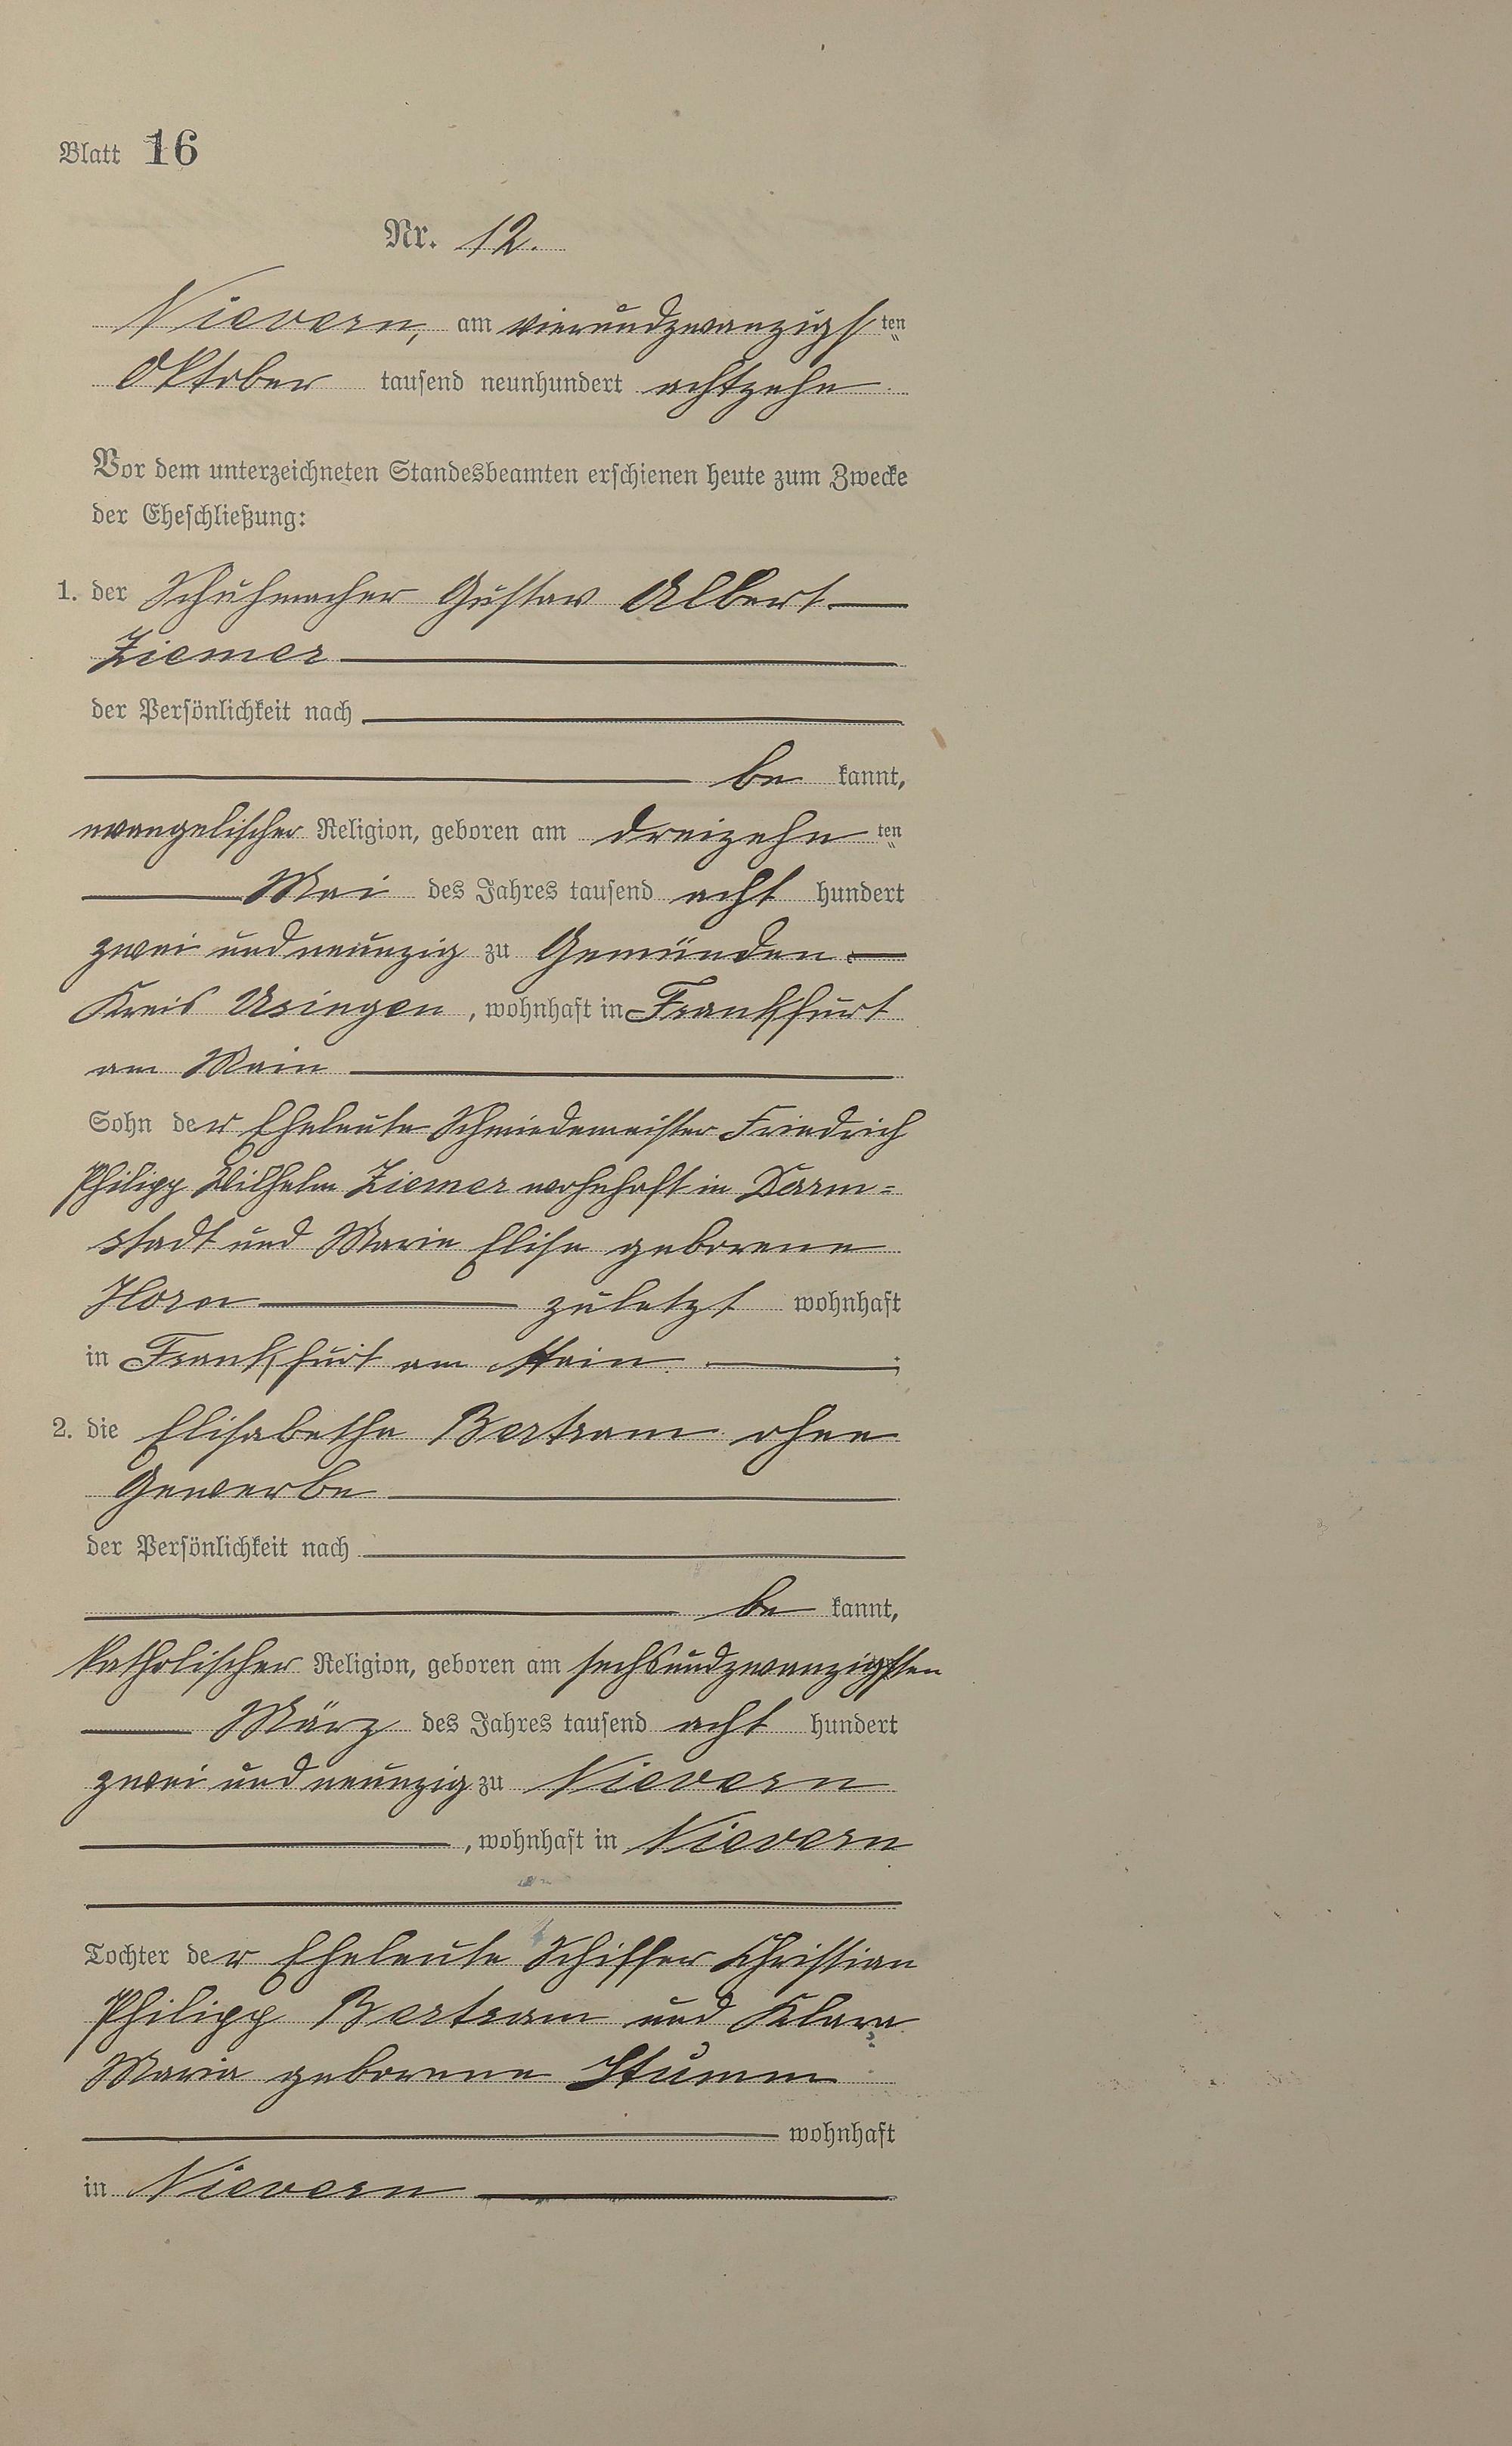 Blatt 16
Nr. 12.
Nievern, am vierundzwanzigsten
Oktober tausend neunhundert achtzehn
Vor dem unterzeichneten Standesbeamten erschienen heute zum Zwecke
der Eheschließung:
1. der Schuhmacher Gustav Albert
Ziemer
der Persönlichkeit nach
be kannt,
evangelischer Religion, geboren am dreizehn ten
Mai des Jahres tausend acht hundert
zwei und neunzig zu Gemünden
Kreis Usingen, wohnhaft in Frankfurt
am Main
Sohn der Eheleute Schmiedemeister Friedrich
Philipp Wilhelm Ziemer wohnhaft in Darm=
stadt und Marie Elise geborene
Horn zuletzt wohnhaft
in Frankfurt am Main ;
2. die Elisabetha Bertram ohne
Gewerbe
der Persönlichkeit nach
be kannt,
katholischer Religion, geboren am sechsundzwanzigsten
März des Jahres tausend acht hundert
zwei und neunzig zu Nievern
, wohnhaft in Nievern
Tochter der Eheleute Schiffer Christian
Philipp Bertram und Klara
Maria geborene Stumm
wohnhaft
in Nievern